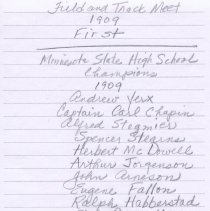 Field and Track Meet
1909
First
Minnesota State High School
Champions
1909
Andrew Yerx
Captain Carl Chapin
Alfred Stegmier
Spencer Stearns
Herbert McDowell
Arthur Jorgenson
John Arneson
Eugene Fallon
Ralph Habberstad